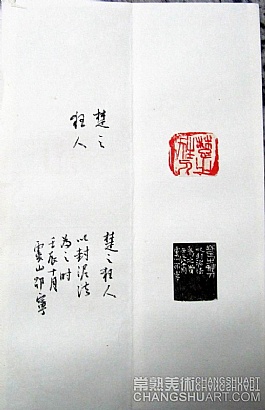 楚之
狂人
楚之狂人
以封泥法
为之时
壬辰十月
雲山邵寧
楚之狂人
常熟美術 CHANGSHUART
CHANGSHUART.COM